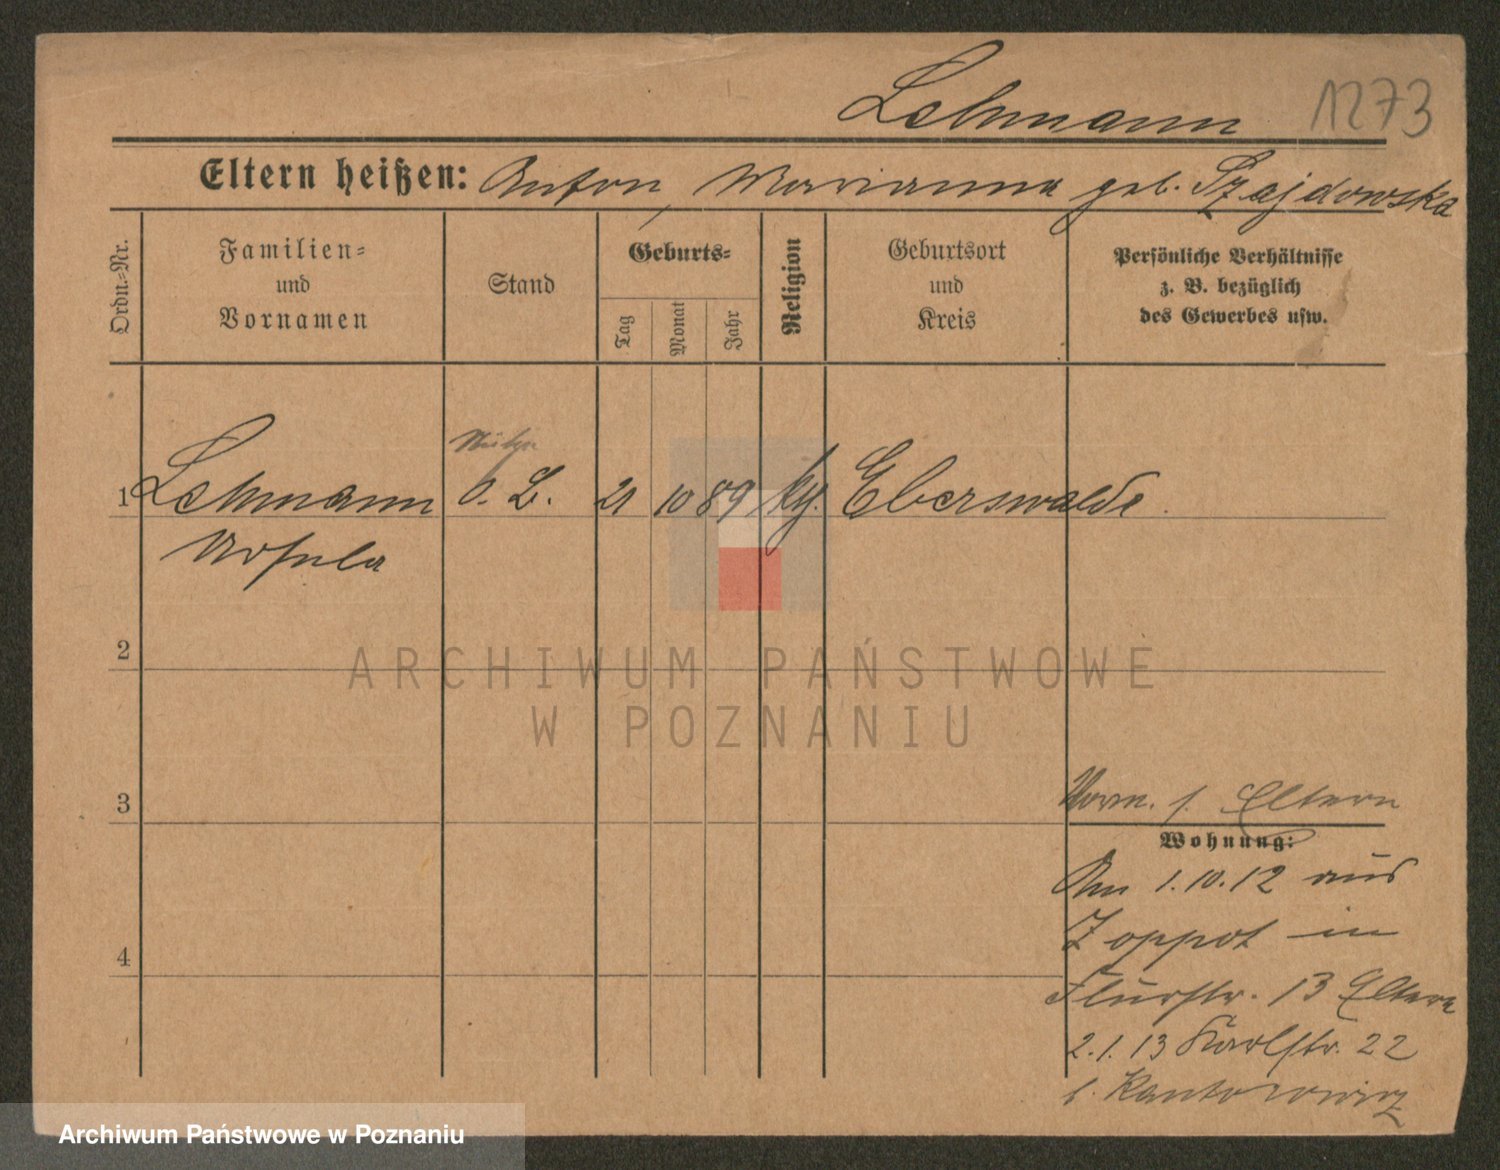 Lehmann 1273
Eltern heißen: Anton, Marianna geb. Szajdowska
Ordn.-Nr.
Familien-
und
Vornamen
Stand
Geburts-
Tag
Monat
Jahr
Religion
Geburtsort
und
Kreis
Persönliche Verhältnisse
z. B. bezüglich
des Gewerbes usw.
1 Lehmann o. B. 21 10 89 Eberswalde.
Ursula
2
ARCHIWUM PAŃSTWOWE
W POZNANIU
3
Eltern
Wohnung:
Am 1.10.12 aus
Zoppot in
Flurstr. 13 Eltern
4
2.1.13 Karlstr. 22
b. Kantorowicz
Archiwum Państwowe w Poznaniu